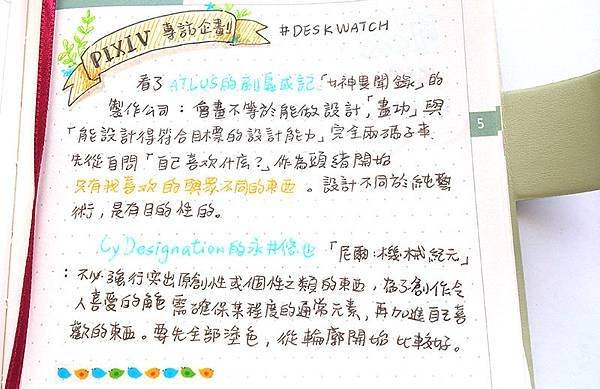 PIXIV 專訪企劃 #DESKWATCH
看了 ATLUS的副島成記「女神異聞錄」的
製作公司：會畫不等於能做設計，「畫功」與
「能設計得符合目標的設計能力」完全兩碼子事
先從自問「自己喜欢什么？」作為頭緒開始
只有我喜欢的與眾不同的東西。設計不同於純藝
術，是有目的性的。
5
CyDesignation的永井悠也「尼爾：機械紀元」
：不必強行突出原創性或個性之類的東西，為了創作令
人喜愛的角色 需確保某程度的通常元素，再加進自己喜
歡的東西。要先全部塗色，從輪廓開始 比較好。